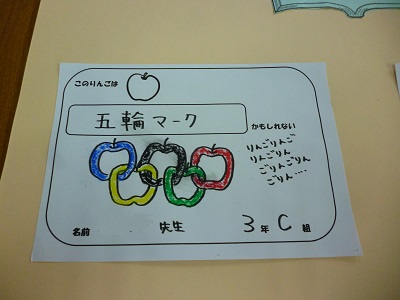 このりんごは
五輪マーク
かもしれない
りんごりんご
りんごりん
ごりんごりん
ごりん....
名前 先生 3年C組